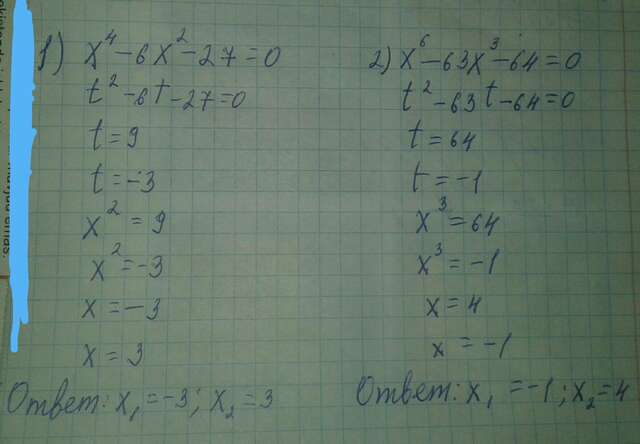 1) x⁴-6x²-27=0
t²-6t-27=0
t=9
t=-3
x²=9
x²=-3
x=-3
x=3
Ответ: x₁=-3; x₂=3
2) x⁶-63x³-64=0
t²-63t-64=0
t=64
t=-1
x³=64
x³=-1
x=4
x=-1
Ответ: x₁=-1; x₂=4